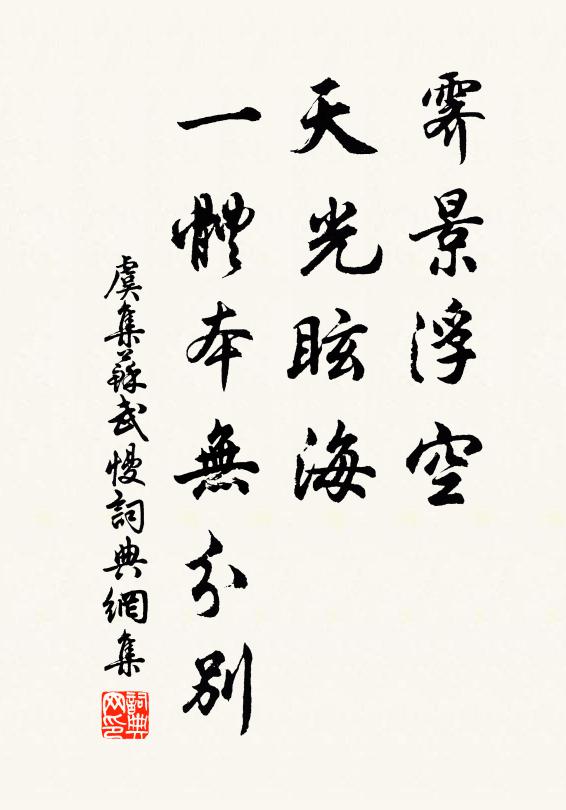 霽景浮空
天光眩海
一體本無分別
虞集蘇武慢詞典網集
詞典網印